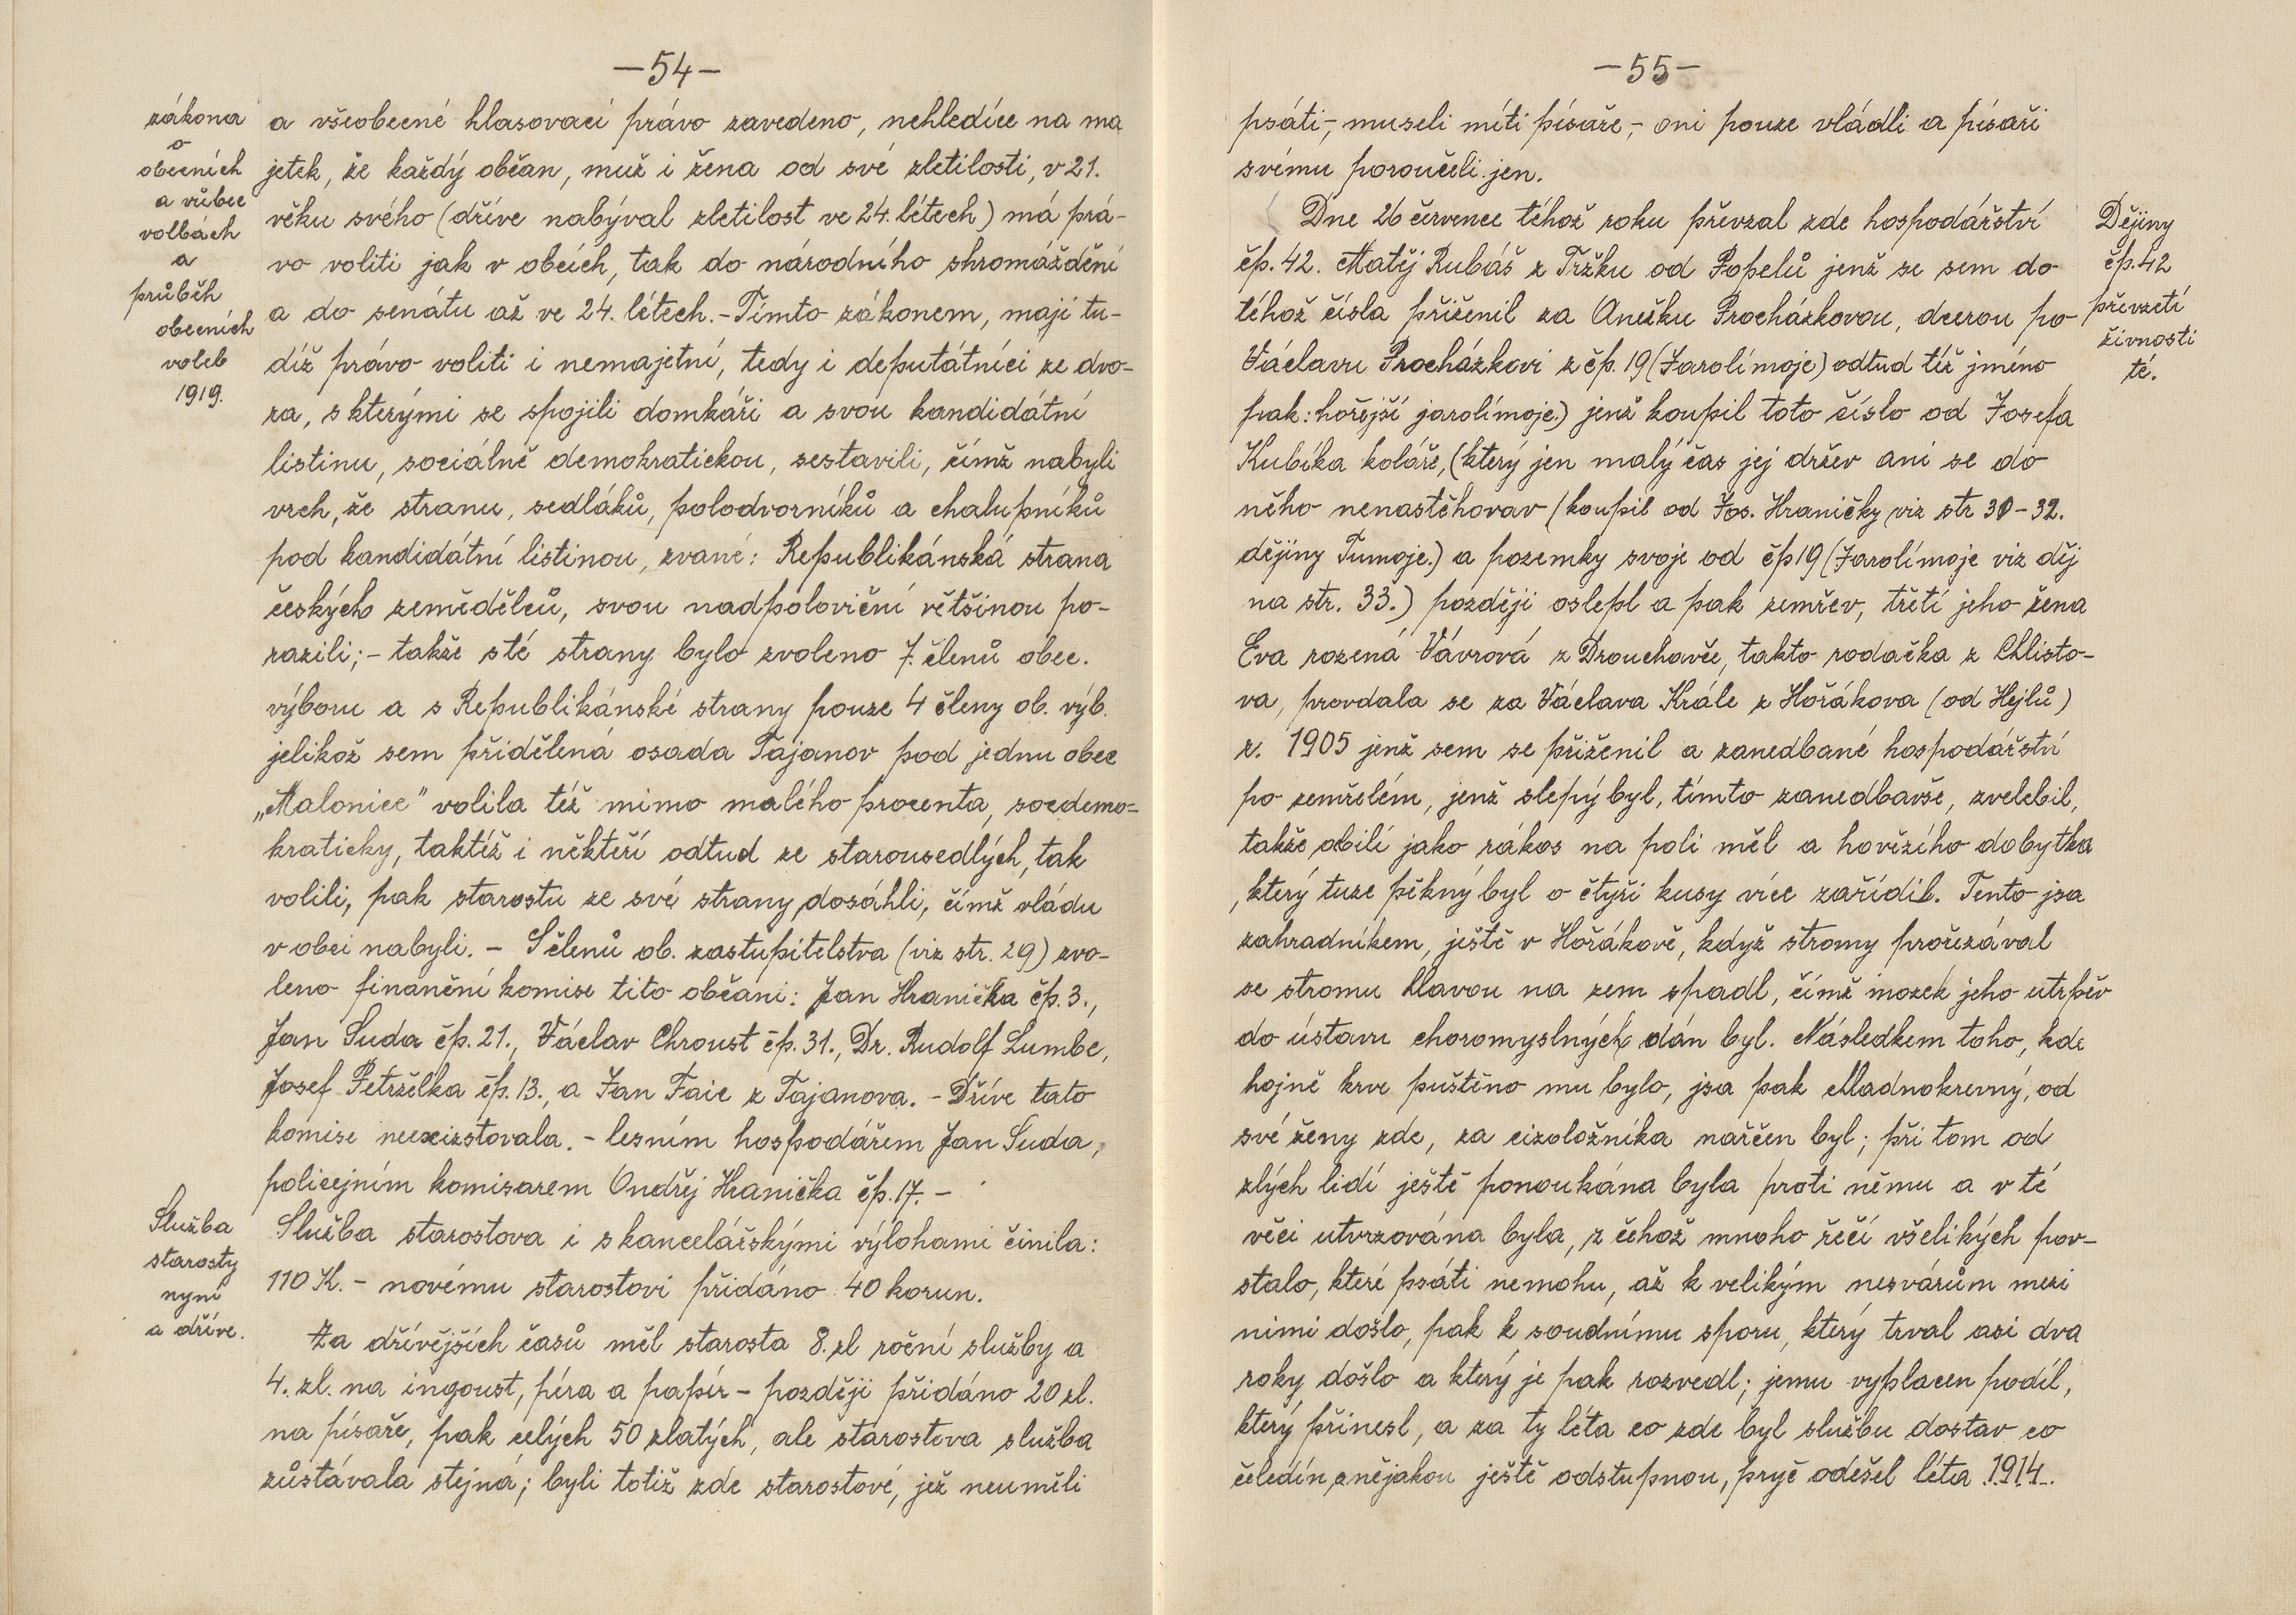 —54—
zákona
o
obecních
a vůbec
volbách
a
průběh
obecních
voleb
1919.
a všeobecné hlasovací právo zavedeno, nehledíce na ma
jetek, že každý občan, muž i žena od své zletilosti, v 21.
věku svého (dříve nabýval zletilost ve 24. létech) má prá-
vo voliti jak v obcích, tak do národního shromáždění
a do senátu až ve 24. létech. - Tímto zákonem, mají tu-
díž právo voliti i nemajetní, tedy i deputátníci ze dvo-
ra, s kterými se spojili domkáři a svou kandidátní
listinu, sociálně demokratickou, sestavili, čímž nabyli
vrch, že stranu, sedláků, polodvorníků a chalupníků
pod kandidátní listinou, zvané: Republikánská strana
českých zemědělců, svou nadpoloviční většinou po-
razili; - takže s té strany bylo zvoleno 7. členů obec.
výboru a s Republikánské strany pouze 4 členy ob. výb.
jelikož sem přidělená osada Tajanov pod jednu obec
„Malonice" volila též mimo malého procenta, socdemo-
kraticky, taktéž i někteří odtud ze starousedlých, tak
volili, pak starostu ze své strany dosáhli, čímž vládu
v obci nabyli. - S členů ob. zastupitelstva (viz str. 29) zvo-
leno finanční komise tito občani: Jan Hranička čp. 3.,
Jan Suda čp. 21., Václav Chroust čp. 31., Dr. Rudolf Lumbe,
Josef Petrželka čp. 13., a Jan Faic z Tajanova. - Dříve tato
komise neexizstovala. - lesním hospodářem Jan Suda,
policejním komisarem Ondřej Hranička čp. 17. -
Služba
starosty
nyní
a dříve.
Služba starostova i s kancelářskými výlohami činila:
110 K. - novému starostovi přidáno 40 korun.
Za dřívějších časů měl starosta 8. zl roční služby a
4. zl. na ingoust, péra a papír - později přidáno 20 zl.
na písaře, pak celých 50 zlatých, ale starostova služba
zůstávala stejná; byli totiž zde starostové, jež neuměli
—55—
psáti, - museli míti písaře, - oni pouze vládli a písaři
svému poroučeli jen.
Dne 26 července téhož roku převzal zde hospodářství
čp. 42. Matěj Rubáš z Tržku od Popelů jenž se sem do
téhož čísla přiženil za Anežku Procházkovou, dcerou po
Václavu Procházkovi z čp. 19 (Jarolímoje) odtud též jméno
pak: hořejší jarolímoje.) jenž koupil toto číslo od Josefa
Kubíka koláře, (který jen malý čas jej držev ani se do
něho nenastěhovav (koupil od Jos. Hraničky viz str 30-32.
dějiny Tumoje.) a pozemky svoje od čp 19 (Jarolímoje viz děj
na str. 33.) později oslepl a pak zemřev, třetí jeho žena
Eva rozená Vávrová z Drouhavče, takto rodačka z Chlisto-
va, provdala se za Václava Krále z Hořákova (od Hejlů)
r. 1905 jenž sem se přiženil a zanedbané hospodářství
po zemřelém, jenž slepý byl, tímto zanedbavše, zvelebil,
takže obilí jako rákos na poli měl a hovězího dobytka
, který tuze pěkný byl o čtyři kusy více zařídil. Tento jsa
zahradníkem, ještě v Hořákově, když stromy prořezával
se stromu hlavou na zem spadl, čímž mozek jeho utrpěv
do ústavu choromyslných dán byl. Následkem toho, kde
hojně krve puštěno mu bylo, jsa pak chladnokrevný, od
své ženy zde, za cizoložníka nařčen byl; při tom od
zlých lidí ještě ponoukána byla proti němu a v té
věci utvrzována byla, z čehož mnoho řečí všelikých pov-
stalo, které psáti nemohu, až k velikým nesvárům mezi
nimi došlo, pak k soudnímu sporu, který trval asi dva
roky došlo a který je pak rozvedl; jemu vyplacen podíl,
který přinesl, a za ty léta co zde byl službu dostav co
čeledín, a nějakou ještě odstupnou, pryč odešel léta 1914.
Dějiny
čp. 42
převzetí
živnosti
té.